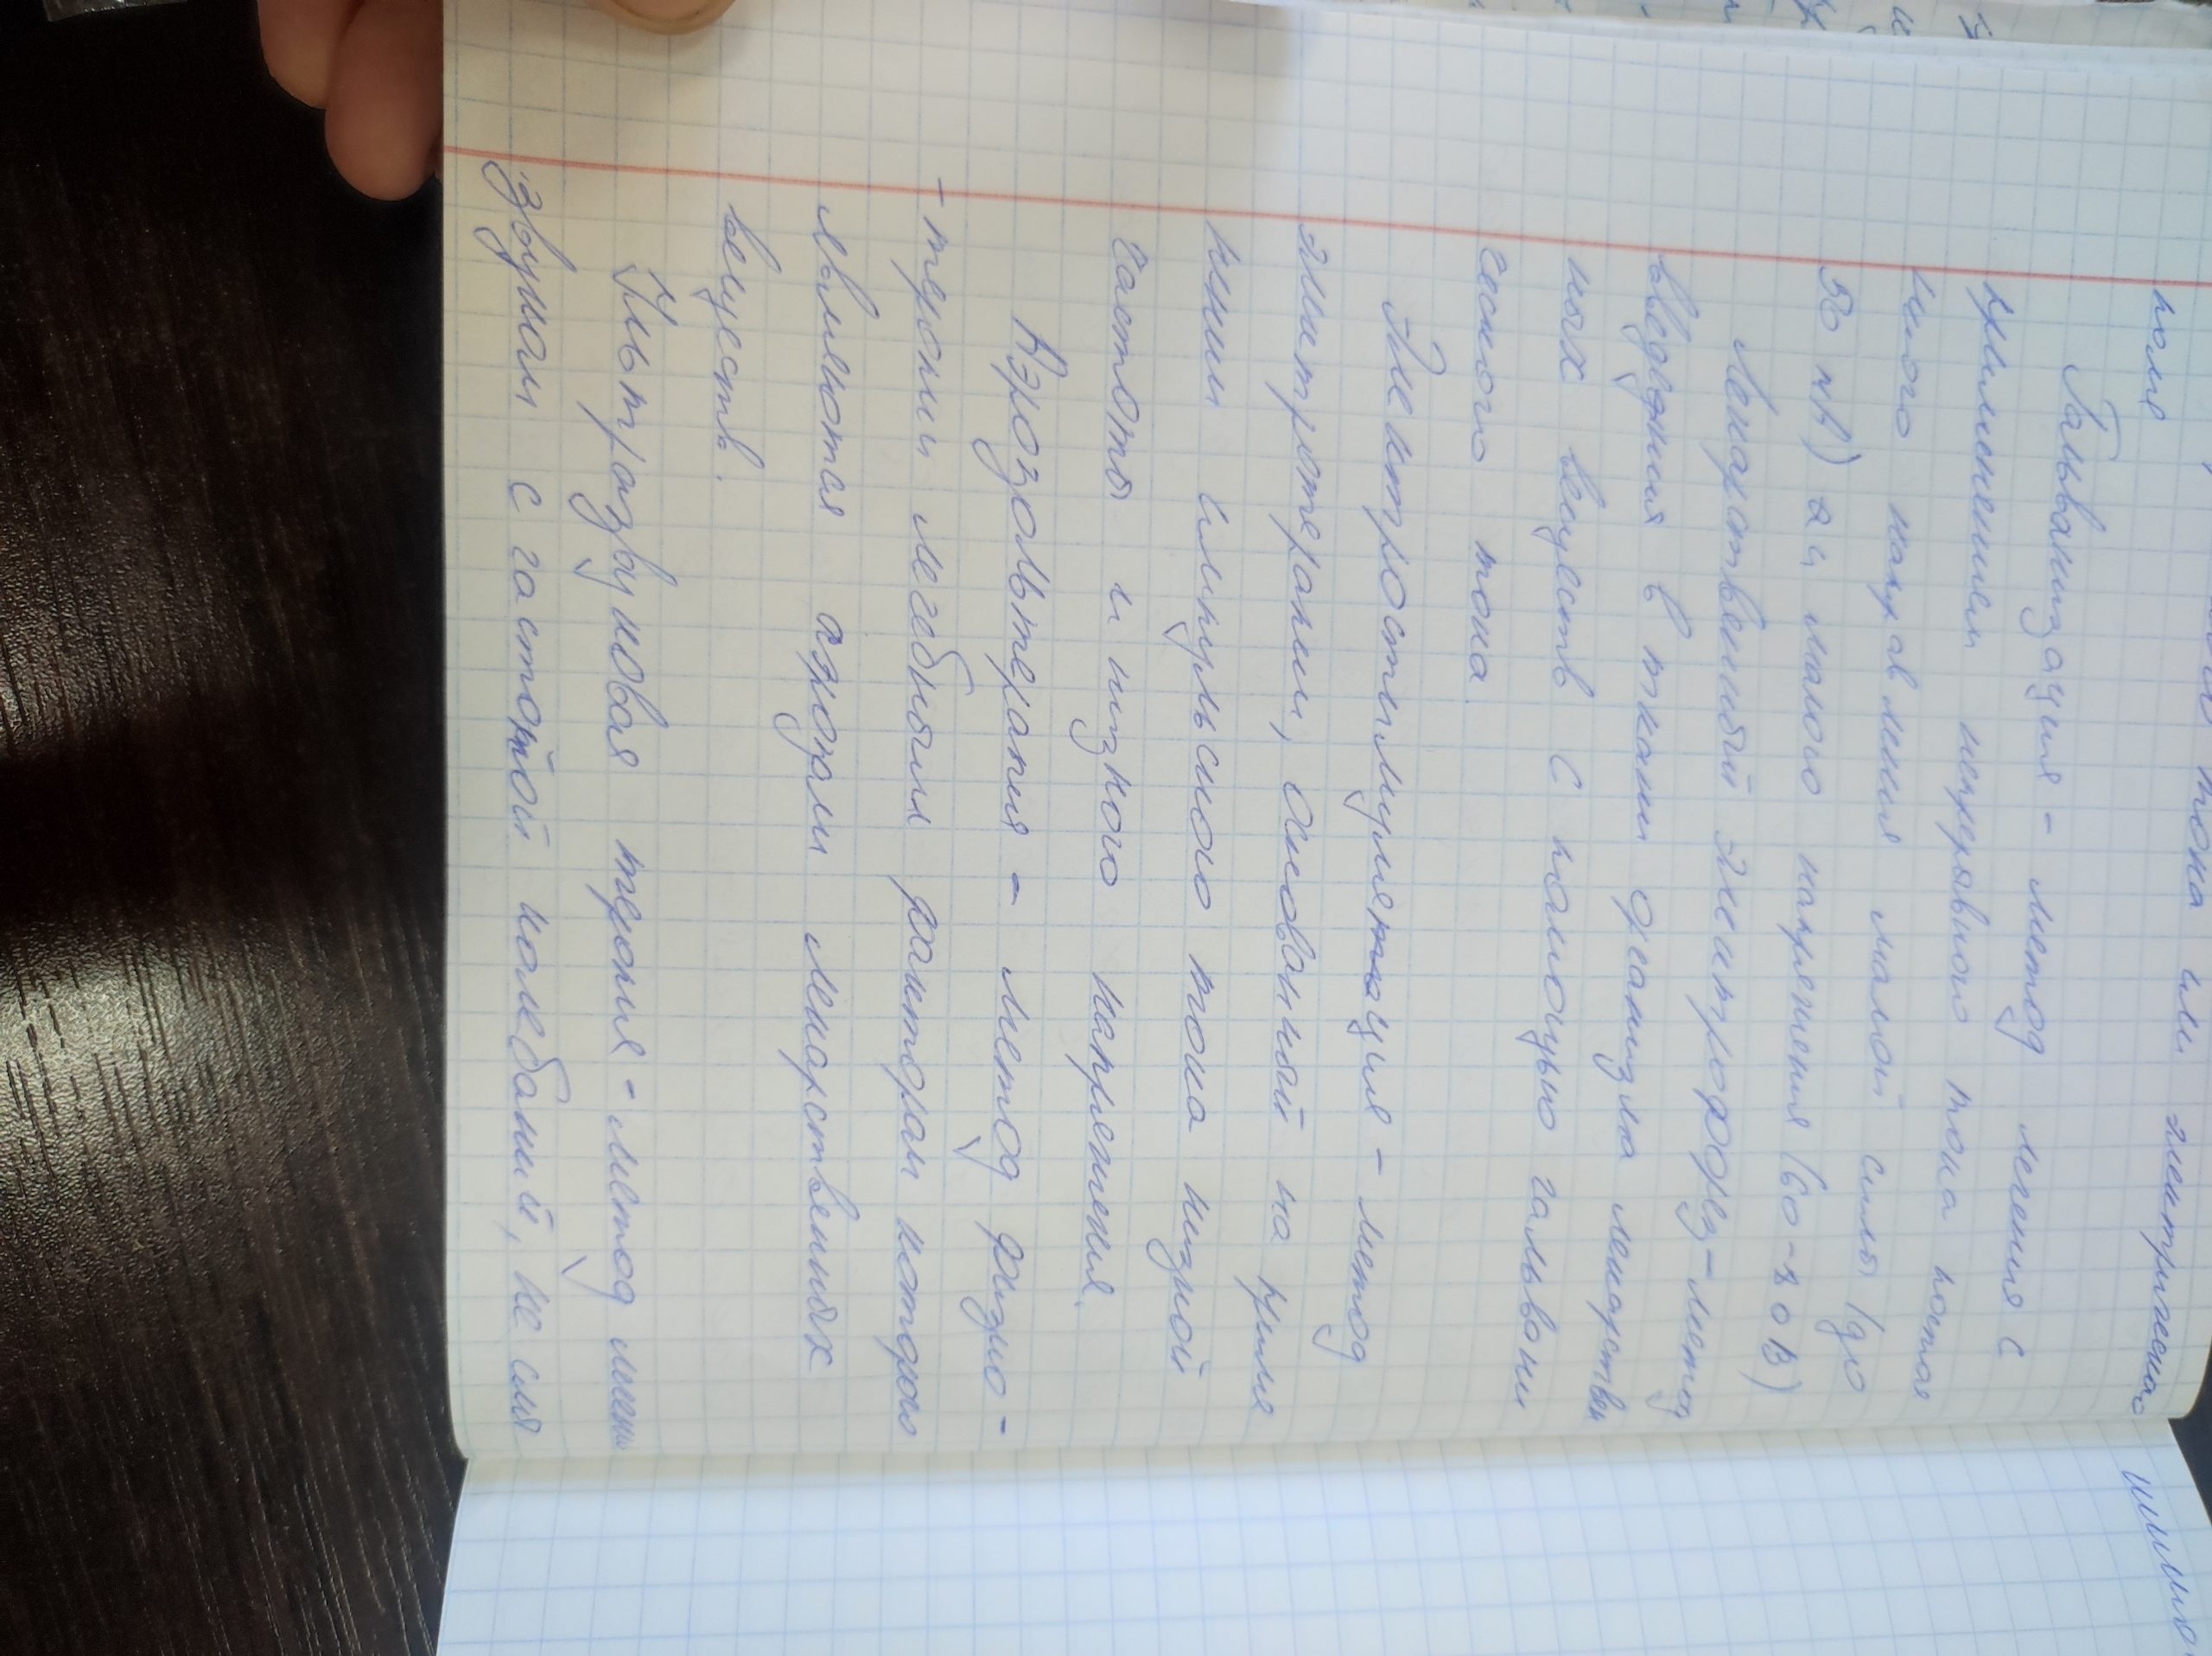 тока или электрического
поля
Гальванизация - метод лечения с
применением непрерывного тока постоя
нного направления малой силы (до
50 мА) и малого напряжения (60-80В)
Лекарственный электрофорез - метод
введения в ткани организма лекарствен
ных веществ с помощью гальвани
ческого тока.
Электростимуляция - метод
электротерапии, основанный на приме
нении импульсного тока низкой
частоты и низкого напряжения.
Аэрозольтерапия - метод физио-
-терапии лечебным фактором которого
являются аэрозоли лекарственных
веществ.
Ультразвуковая терапия - метод лечения
звуком с частотой колебаний, не слы